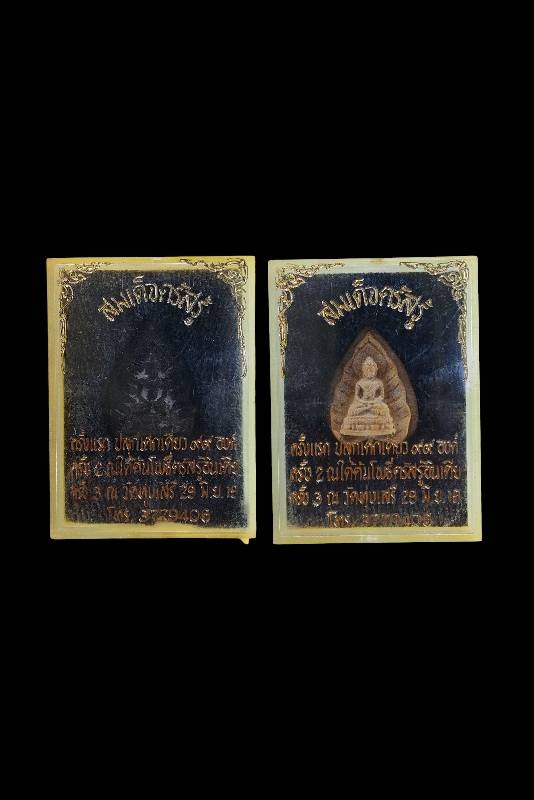 สมเด็จตรัสรู้
ครั้งแรก ปลุกเสกเดี่ยว ๙๙ องค์
ครั้ง 2 ณใต้ต้นโพธิ์ตรัสรู้อินเดีย
ครั้ง 3 ณ วัดทุ่งเสรี 29 มิ.ย. 18
โทร. 3779406
สมเด็จตรัสรู้
ครั้งแรก ปลุกเสกเดี่ยว ๙๙ องค์
ครั้ง 2 ณใต้ต้นโพธิ์ตรัสรู้อินเดีย
ครั้ง 3 ณ วัดทุ่งเสรี 29 มิ.ย. 18
โทร.